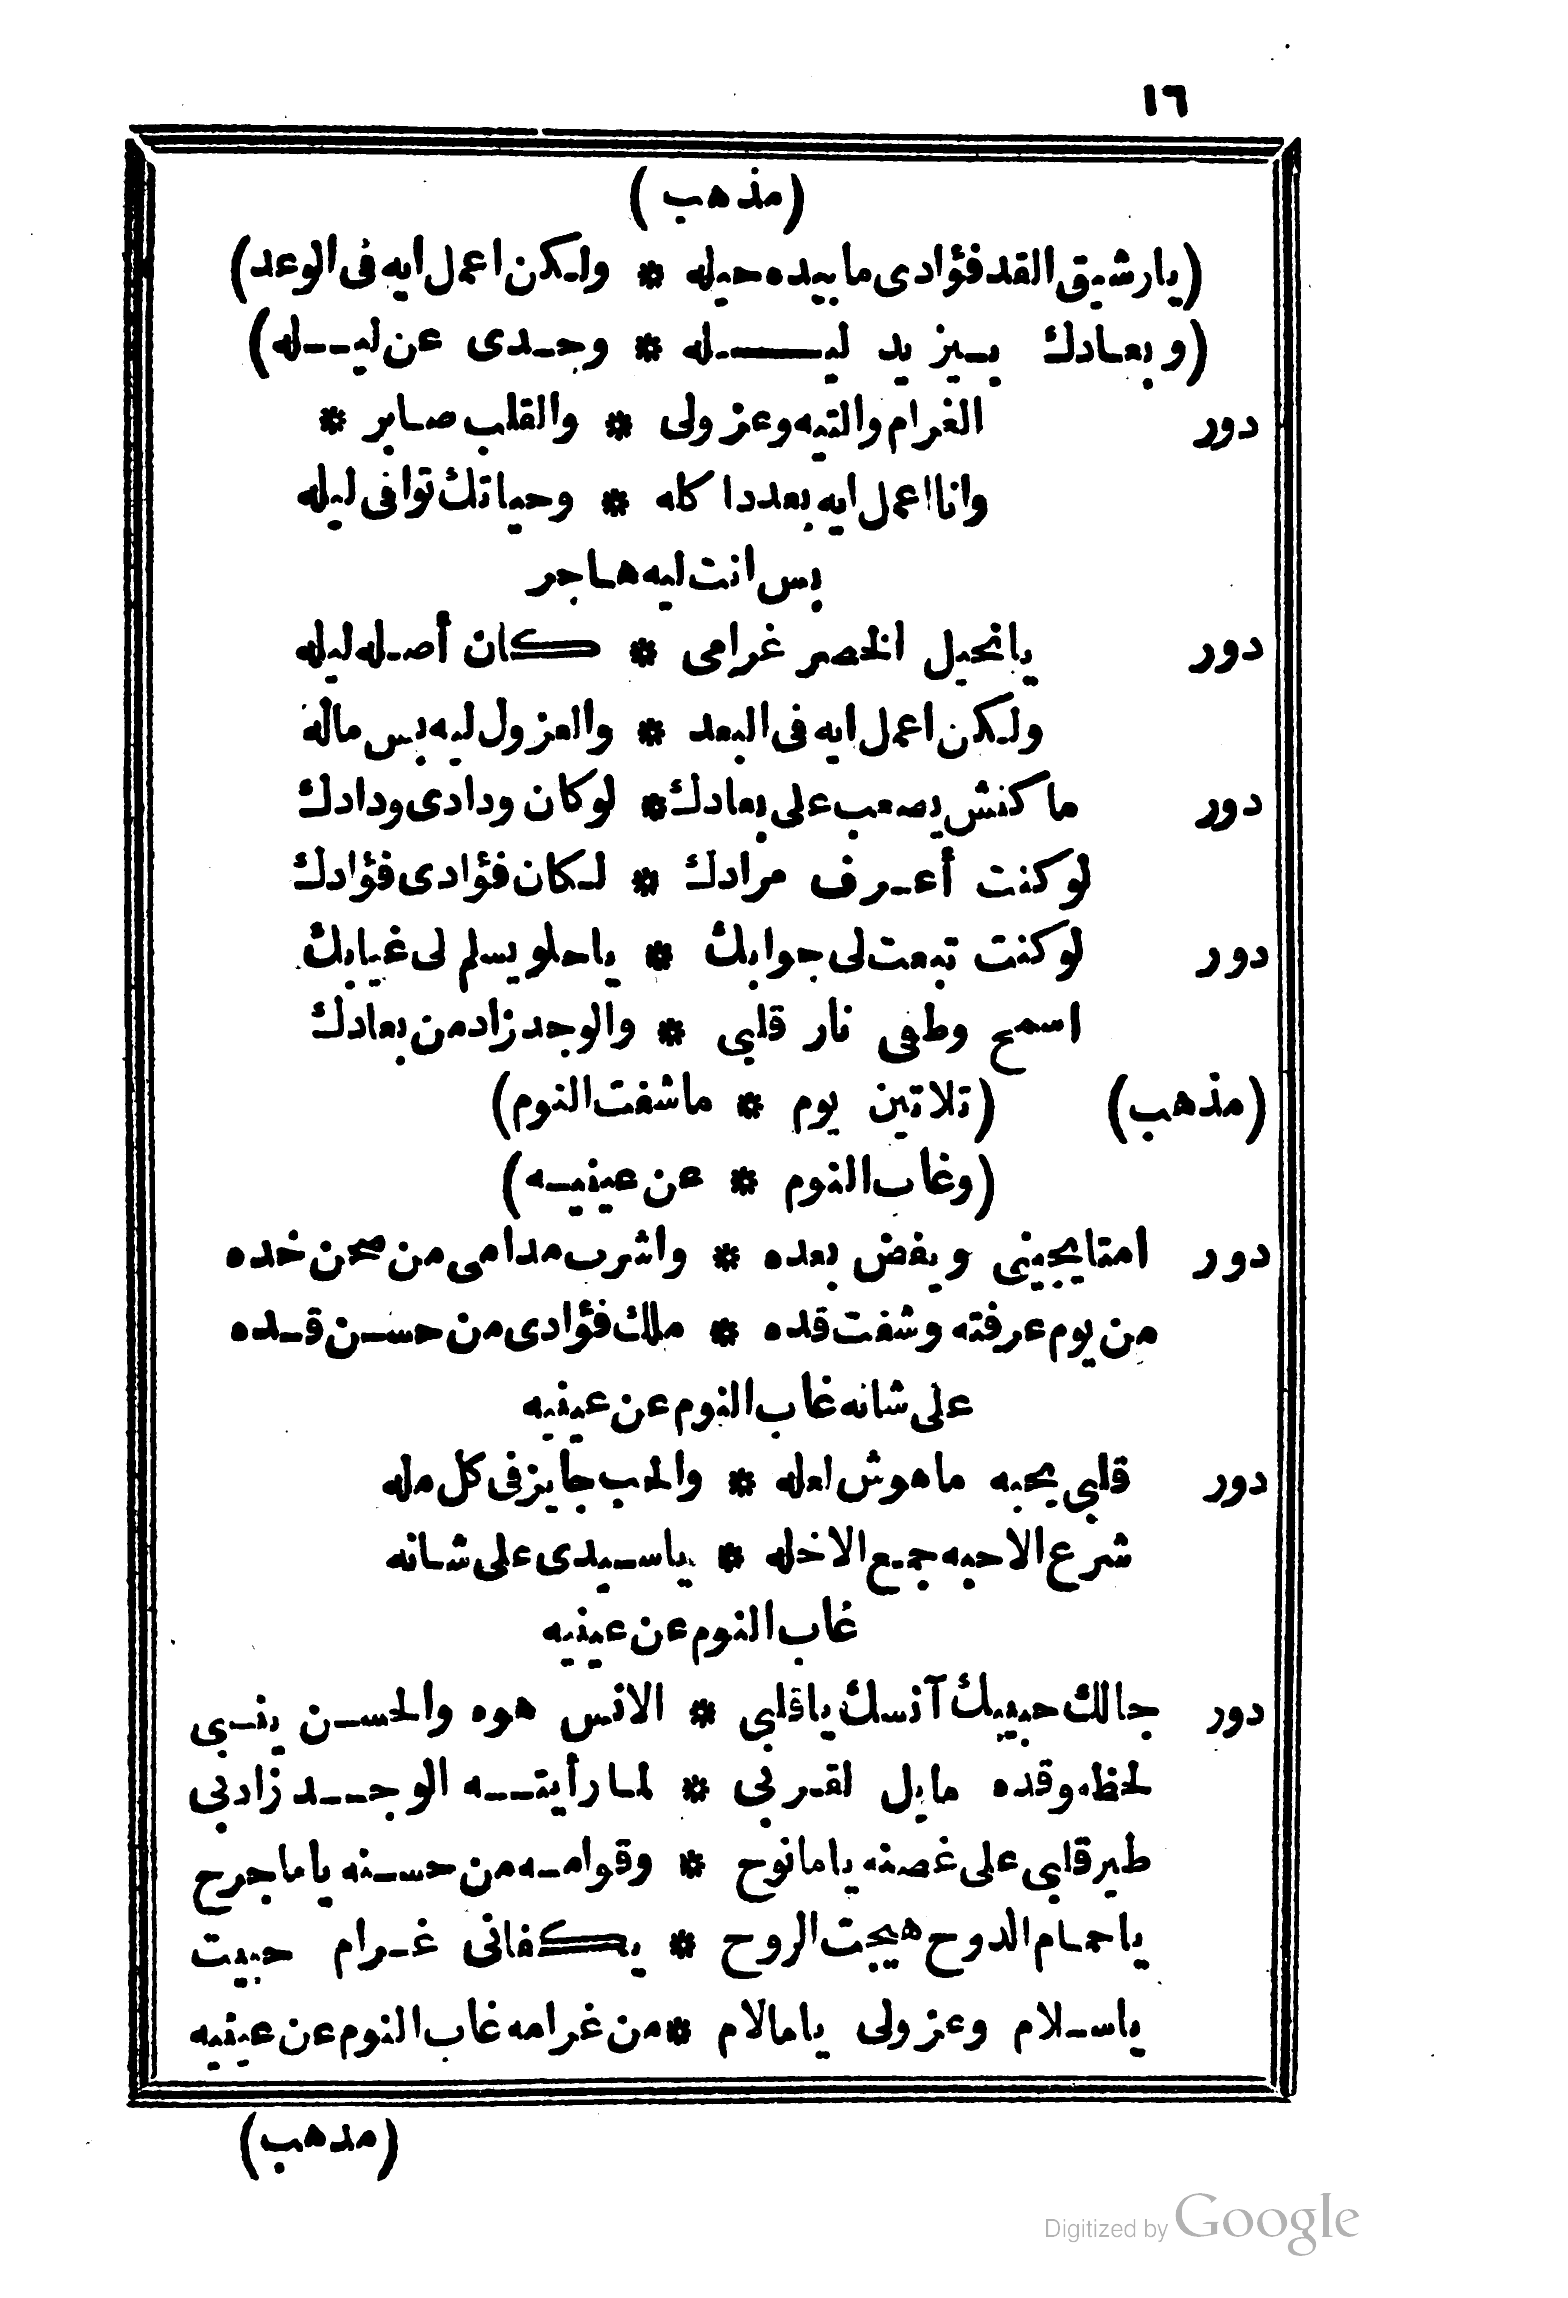 ١٦
(مذهب)
(يارشيق القد فؤادى مابيده حيله * ولكن اعمل ايه فى الوعد)
(وبعادك بيزيد ليله * وجدى عن ليله)
دور الغرام والتيه وعزولى * والقلب صابر *
وانا اعمل ايه بعد دا كله * وحياتك توافى ليله
بس انت ليه هاجر
دور يانحيل الخصر غرامى * كان أصله ليله
ولكن اعمل ايه فى البعد * والعزول ليه بس ماله
دور ما كنش يصعب على بعادك * لو كان ودادى ودادك
لو كنت أعرف مرادك * لكان فؤادى فؤادك
دور لو كنت تبعت لى جوابك * ياحلو يسلم لى غيابك
اسمح وطفى نار قلبى * والوجد زاد من بعادك
(مذهب) (تلاتين يوم * ماشفت النوم)
(وغاب النوم * عن عينيه)
دور امتا يجينى ويفض بعده * واشرب مدامى من صحن خده
من يوم عرفته وشفت قده * ملك فؤادى من حسن قده
على شانه غاب النوم عن عينيه
دور قلبى يحبه ماهوش لعله * والحب جايز فى كل مله
شرع الاحبه جمع الاخله * ياسيدى على شانه
غاب النوم عن عينيه
دور جالك حبيبك آنسك ياقلبى * الانس هوه والحسن ينبى
لحظه وقده مايل لقربى * لما رأيته الوجد زادبى
طير قلبى على غصنه ياما نوح * وقوامه من حسنه ياما جرح
ياحمام الدوح هيجت الروح * يكفانى غرام حبيت
ياسلام وعزولى ياما لام * من غرامه غاب النوم عن عينيه
(مذهب)
Digitized by Google